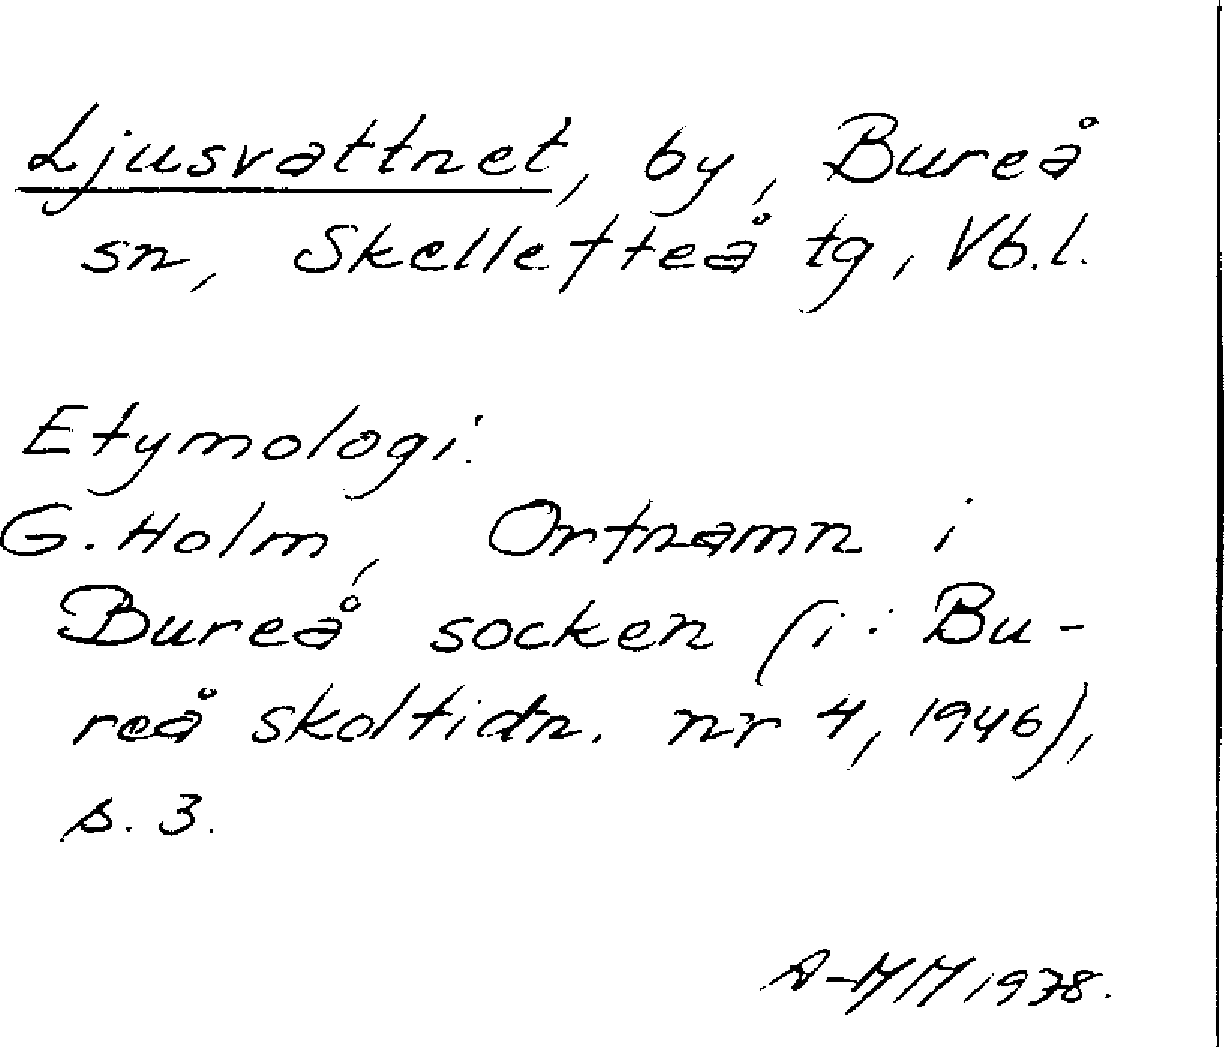 Ljusvattnet, by, Bureå
sn, Skellefteå tg, Vb.l.
Etymologi:
G. Holm, Ortnamn i
Bureå socken (i: Bu-
reå skoltidn. nr 4, 1946),
s. 3.
A-MM 1978.